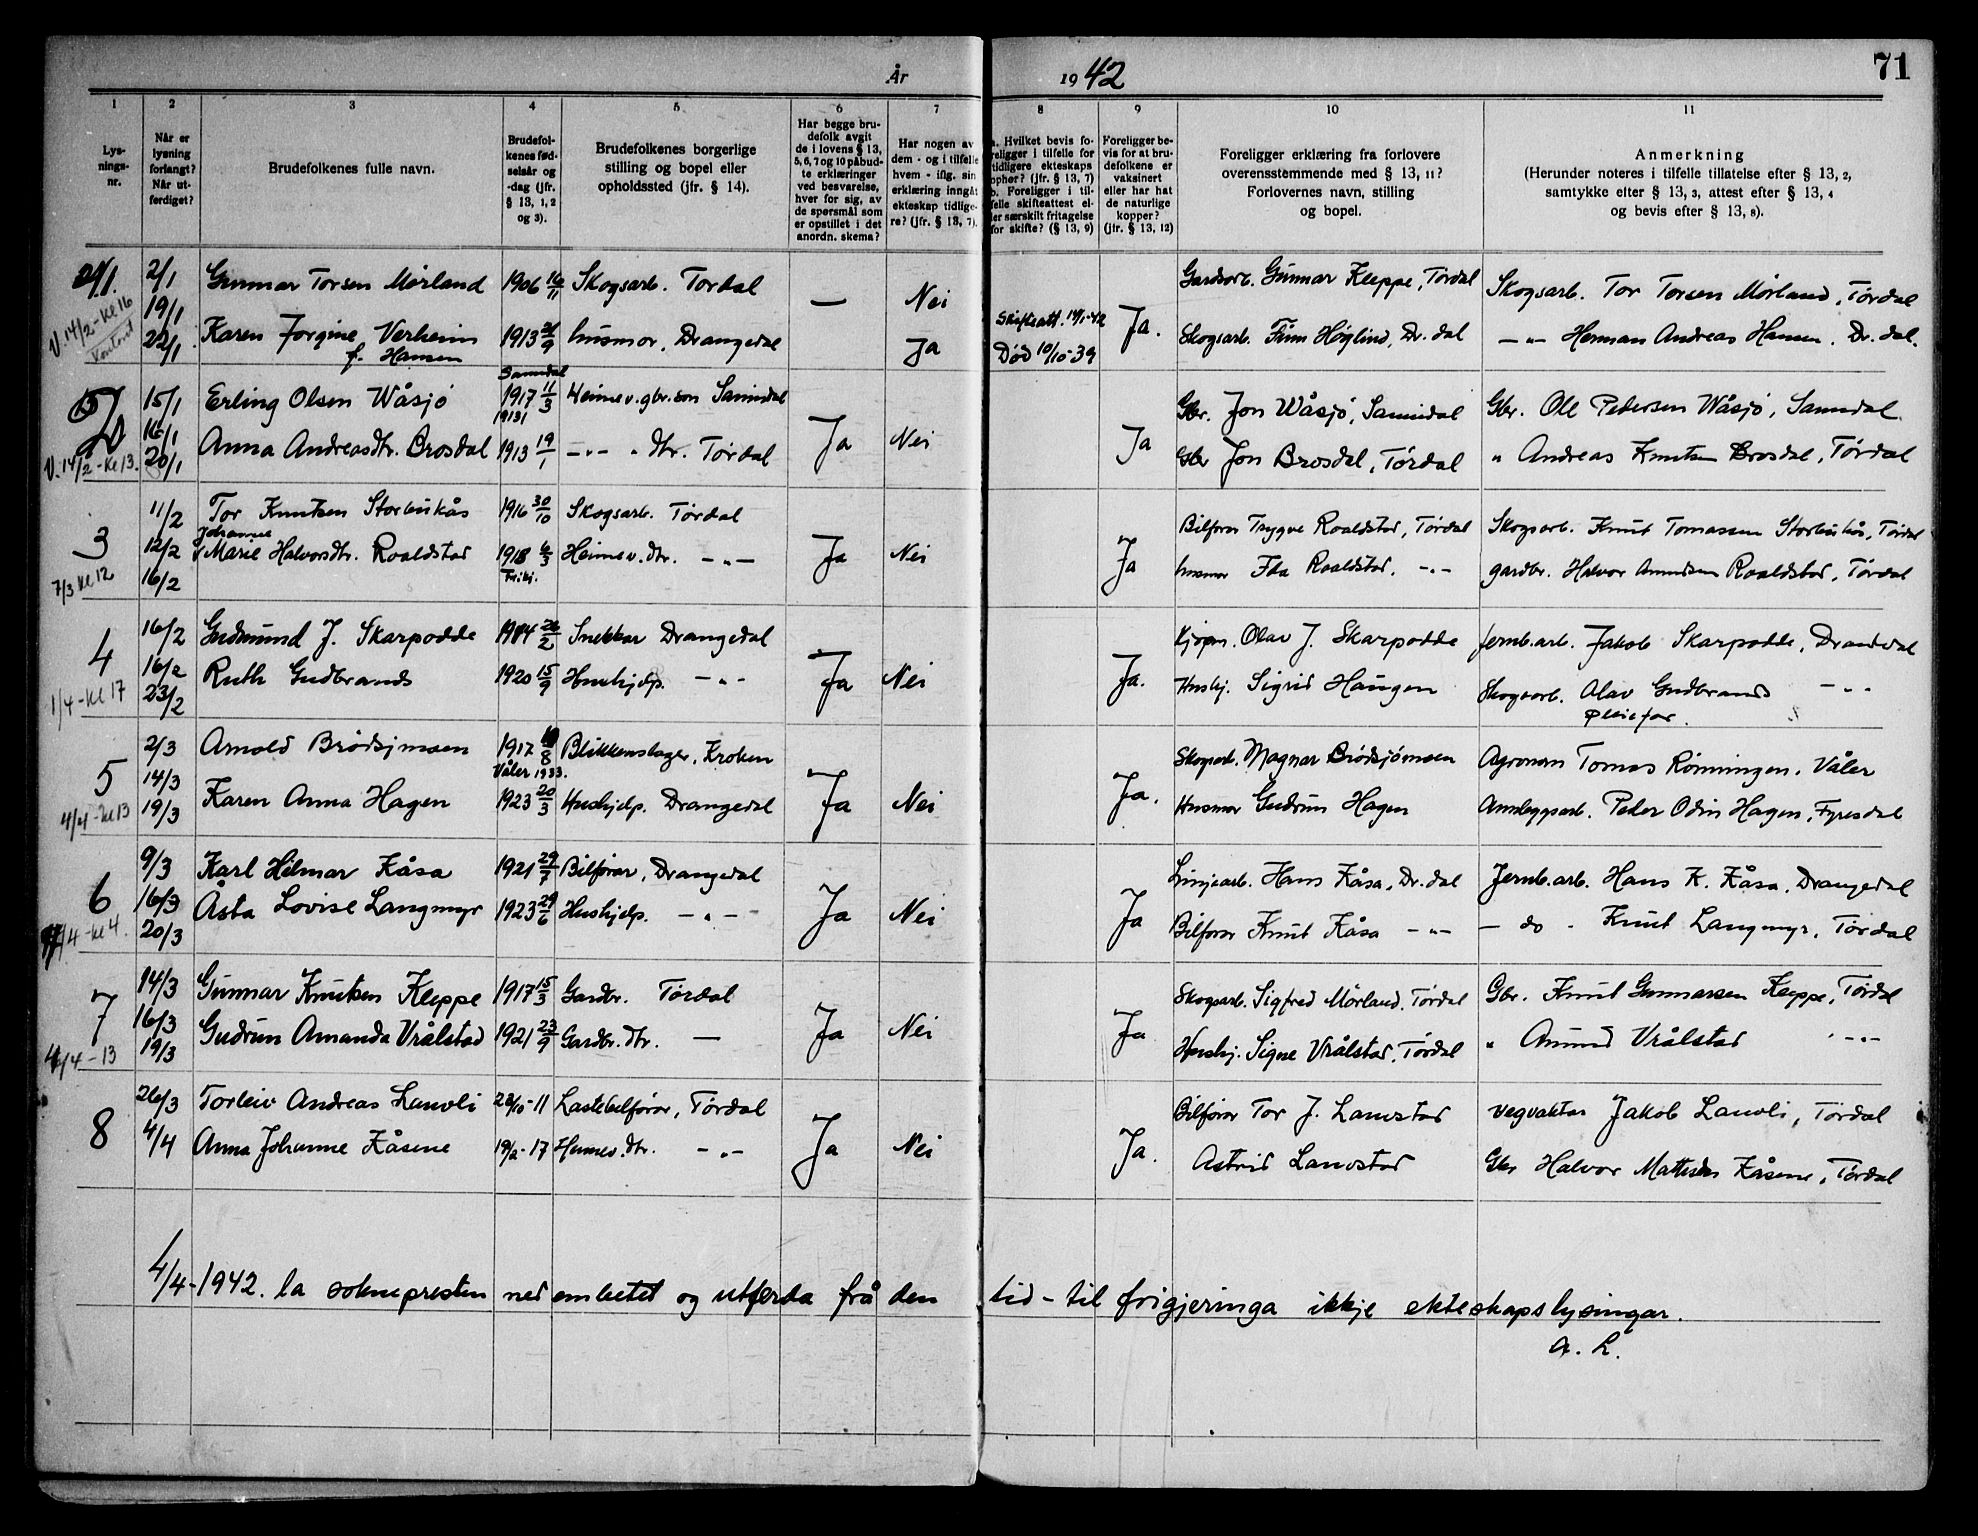 År 1942
71
1 2 3 4 5 6 7 8 9 10 11
Lysnings-nr.
Når er lysning forlangt? Når utferdiget?
Brudefolkenes fulle navn.
Brudefolkenes fødselsår og -dag (jfr. § 13, 1, 2 og 3).
Brudefolkenes borgerlige stilling og bopel eller opholdssted (jfr. § 14).
Har begge brudefolk avgit de i lovens § 13, 5, 6, 7 og 10 påbudte erklæringer ved besvarelse, hver for sig, av de spørsmål som er opstillet i det anordn. skema?
Har nogen av dem - og i tilfelle hvem - iflg. sin erklæring inngått ekteskap tidligere? (jfr. § 13, 7).
a. Hvilket bevis foreligger i tilfelle for tidligere ekteskaps ophør? (jfr. § 13, 7) b. Foreligger i tilfelle skifteattest eller særskilt fritagelse for skifte? (§ 13, 9)
Foreligger bevis for at brudefolkene er vaksinert eller har hat de naturlige kopper? (jfr. § 13, 12)
Foreligger erklæring fra forlovere overensstemmende med § 13, 11? Forlovernes navn, stilling og bopel.
Anmerkning (Herunder noteres i tilfelle tillatelse efter § 13, 2, samtykke efter § 13, 3, attest efter § 13, 4 og bevis efter § 13, 8).
2/1 Gunnar Torsen Mørland 1906 16/11 Skogsarb. Tørdal — Nei Gardarb. Gunnar Kleppe, Tørdal Skogsarb. Tor Torsen Mørland, Tørdal
19/1
V. 14/2 - Kl 16 Kontoret
22/1 Karen Jorgine Verheim f. Hansen 1913 21/9 husmor, Drangedal Ja Skifteatt. 19/1-42 Død 10/10-39 Ja. Skogsarb. Finn Høglind, Dr.dal —"— Herman Andreas Hansen. Dr.dal.
Sannidal
2 15/1 Erling Olsen Wåsjø 1917 11/3 Heimev. gbr.son Sannidal Gbr. Jon Wåsjø, Sannidal Gbr. Ole Pedersen Wåsjø, Sannidal
16/1 Ja Nei Ja
V. 14/2 - Kl 13. 20/1 Anna Andreasdtr. Brosdal 1913 19/1 —"— " dtr. Tørdal Gbr Jon Brosdal, Tørdal " Andreas Knutsen Brosdal, Tørdal
3 11/2 Tor Knutsen Storbukås 1916 30/10 Skogsarb. Tørdal Bilførar Trygve Roaldstad, Tørdal Skogsarb. Knut Tomassen Storbukås, Tørdal
Johanne
12/2 Marie Halvorsdtr. Roaldstad 1918 6/3 Heimev. dtr. —"— Ja Nei Ja husmor Ida Roaldstad. —"— gardbr. Halvor Amundsen Roaldstad, Tørdal
7/3 Kl 12 16/2
4 16/2 Gudmund J. Skarpodde 1914 26/2 Snekkar Drangedal Kjøpm. Olav J. Skarpodde Jernb.arb. Jakob Skarpodde, Drangedal
16/2 Ruth Gudbrands 1920 15/9 Hushjelp. —"— Ja Nei Ja. Hushj. Sigrid Haugen Skogsarb. Olav Gudbrands —"—
1/4 - Kl 17 23/2 Pleiefar.
5 2/3 Arnold Brødsjømoen 1917 10/8 Blikkenslager, Kroken Skogsarb. Magnar Brødsjømoen Agronom Tomas Rønningen. Våler
Våler 1933.
14/3 Ja Nei Ja.
4/4 - Kl 13 19/3 Karen Anna Hagen 1923 20/3 Hushjelp. Drangedal Husmor Gudrun Hagen Anleggsarb. Peder Odin Hagen, Fyresdal
6 9/3 Karl Hilmar Kåsa 1921 29/7 Bilførar, Drangedal Linjearb. Hans Kåsa, Dr.dal Jernb.arb. Hans K. Kåsa, Drangedal
16/3 Åsta Lovise Langmyr 1923 29/6 Hushjelp. —"— Ja Nei Ja Bilførar Knut Kåsa —"— — do - Knut Langmyr, Tørdal
/4 - Kl 4. 20/3
7 14/3 Gunnar Knutsen Kleppe 1917 15/3 Gardbr. Tørdal Skogsarb. Sigfred Mørland, Tørdal Gbr. Knut Gunnarsen Kleppe, Tørdal
16/3 Gudrun Amanda Vrålstad 1921 23/9 Gardbr. dtr. — Ja Nei Ja Hushj. Signe Vrålstad, Tørdal " Amund Vrålstad —"—
4/4 - 13 19/3
8 26/3 Torleiv Andreas Lauvli 23/10-11 Lastebilførar, Tørdal Bilførar Tor J. Lauvstad Vegvaktar Jakob Lauvli, Tørdal
4/4 Anna Johanne Kåsene 19/2-17 Heimev. dtr. —"— Ja Nei Ja. Astrid Lauvstad Gbr Halvor Mattisen Kåsene, Tørdal
4/4-1942. la soknepresten ned embetet og utferda frå den tid - til frigjeringa ikkje ekteskapslysingar.
A. L.